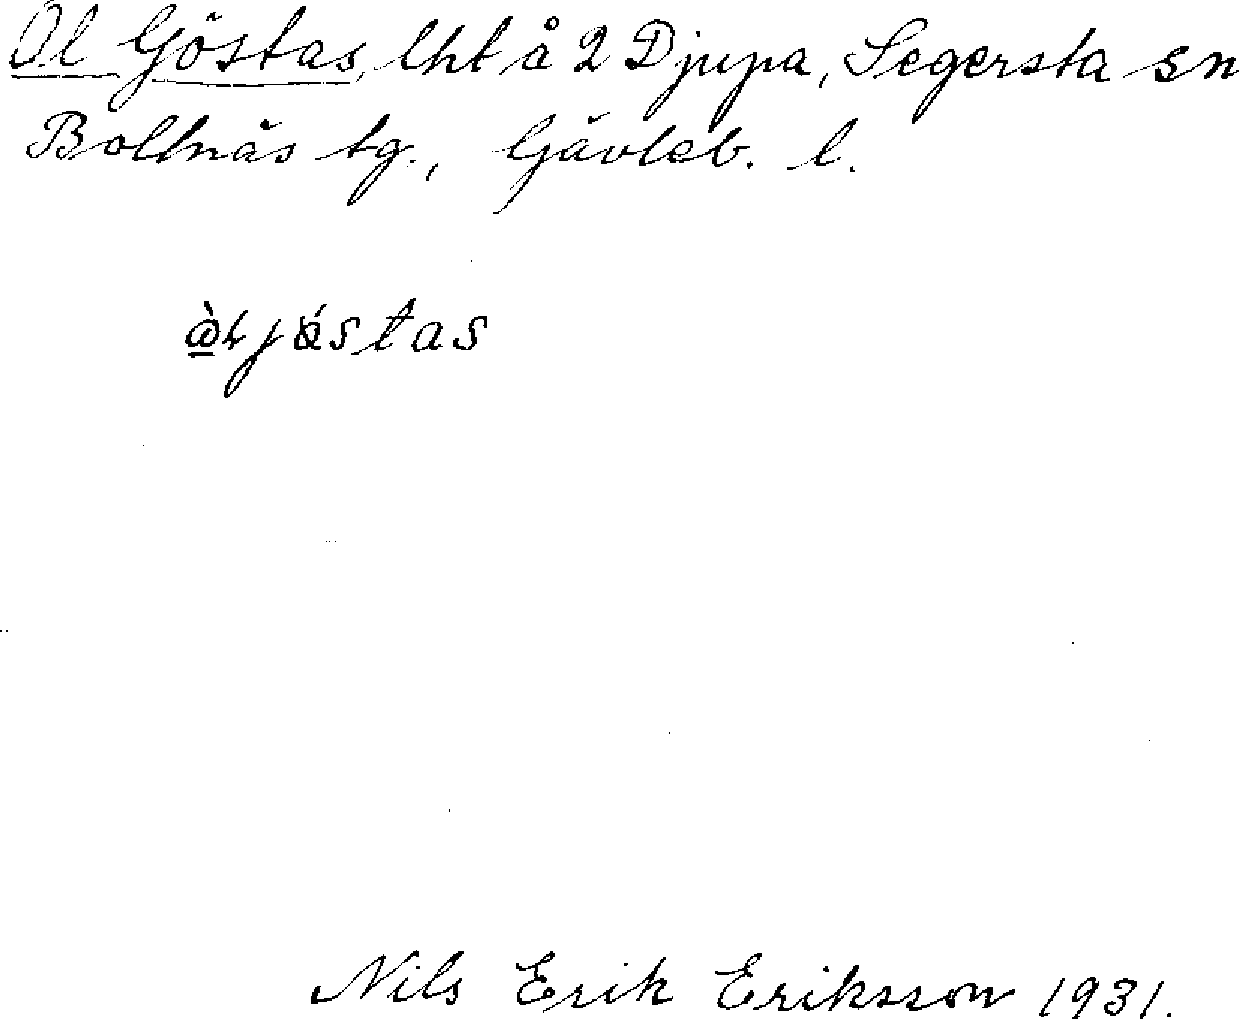 Ol Göstas, lht å 2 Djupa, Segersta sn
Bollnäs tg., Gävleb. l.
Nils Erik Eriksson 1931.